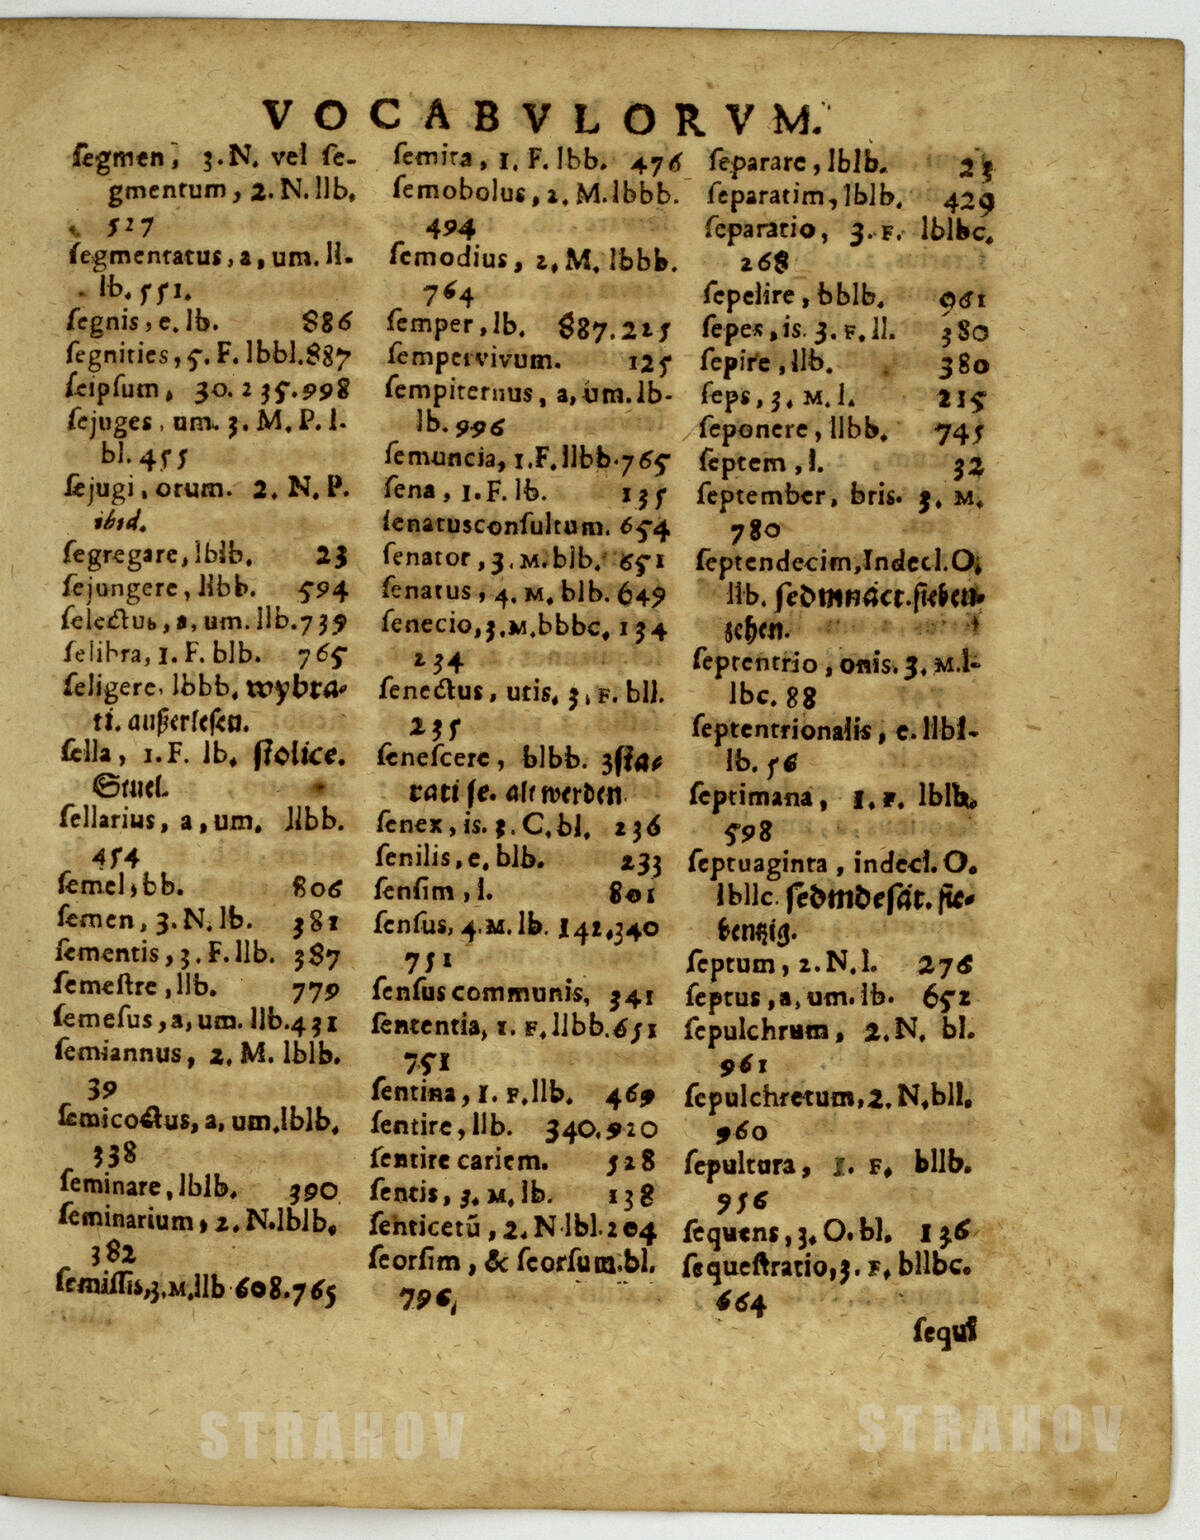 VOCABVLORVM.
ſegmen, 3. N. vel ſe-
gmentum, 2. N. llb.
527
ſegmentatus, a, um. ll-
lb. 551.
ſegnis, e. lb. 886
ſegnities, 5. F. lbbl. 887
ſeipſum, 30. 235. 998
ſejuges, um. 3. M. P. l-
bl. 455
ſejugi, orum. 2. N. P.
ibid.
ſegregare, lblb. 23
ſejungere, llbb. 594
ſelectus, a, um. llb. 739
ſelibra, 1. F. blb. 765
ſeligere. lbbb. wybra-
ti. außerleſen.
ſella, 1. F. lb. ſtolice.
Stuel.
ſellarius, a, um. llbb.
454
ſemel, bb. 806
ſemen, 3. N. lb. 381
ſementis, 3. F. llb. 387
ſemeſtre, llb. 779
ſemeſus, a, um. llb. 431
ſemiannus, 2. M. lblb.
39
ſemicoctus, a, um. lblb.
338
ſeminare, lblb. 390
ſeminarium, 2. N. lblb.
382
ſemiſſis, 3. M. llb 608. 765
ſemita, 1. F. lbb. 476
ſemobolus, 2. M. lbbb.
494
ſemodius, 2. M. lbbb.
764
ſemper, lb. 887. 225
ſempervivum. 125
ſempiternus, a, um. lb-
lb. 996
ſemuncia, 1. F. llbb. 765
ſena, 1. F. lb. 135
ſenatusconſultum. 654
ſenator, 3. M. blb. 651
ſenatus, 4. M. blb. 649
ſenecio, 3. M. bbbc. 134
234
ſenectus, utis. 3. F. bll.
235
ſeneſcere, blbb. zſta-
rati ſe. alt werden
ſenex, is. 3. C. bl. 236
ſenilis, e. blb. 233
ſenſim, l. 801
ſenſus, 4. M. lb. 142. 340
751
ſenſus communis, 341
ſententia, 1. F. llbb. 651
751
ſentina, 1. F. llb. 469
ſentire, llb. 340. 920
ſentire cariem. 528
ſentis, 3. M. lb. 138
ſenticetũ, 2. N. lbl. 204
ſeorſim, & ſeorſum. bl.
796,
ſeparare, lblb. 23
ſeparatim, lblb. 429
ſeparatio, 3. F. lblbc.
268
ſepelire, bblb. 961
ſepes, is. 3. F. ll. 380
ſepire, llb. 380
ſeps, 3. M. l. 215
ſeponere, llbb. 745
ſeptem, l. 32
ſeptember, bris. 3. M.
780
ſeptendecim, Indecl. O.
llb. ſedmnáct. ſieben-
zehen.
ſeptentrio, onis. 3. M. l-
lbc. 88
ſeptentrionalis, e. llbl-
lb. 56
ſeptimana, 1. F. lblb.
598
ſeptuaginta, indecl. O.
lbllc. ſedmdeſát. ſie-
benzig.
ſeptum, 2. N. l. 276
ſeptus, a, um. lb. 652
ſepulchrum, 2. N. bl.
961
ſepulchretum, 2. N. bll.
960
ſepultura, 1. F. bllb.
956
ſequens, 3. O. bl. 136
ſequeſtratio, 3. F. bllbc.
664
ſequi
STRAHOV STRAHOV